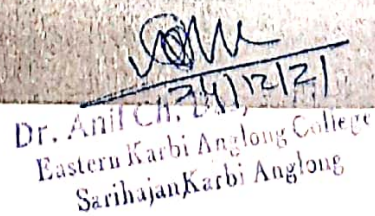 24/12/21
Dr. Anil Ch.
Eastern Karbi Anglong College
Sarihajan, Karbi Anglong